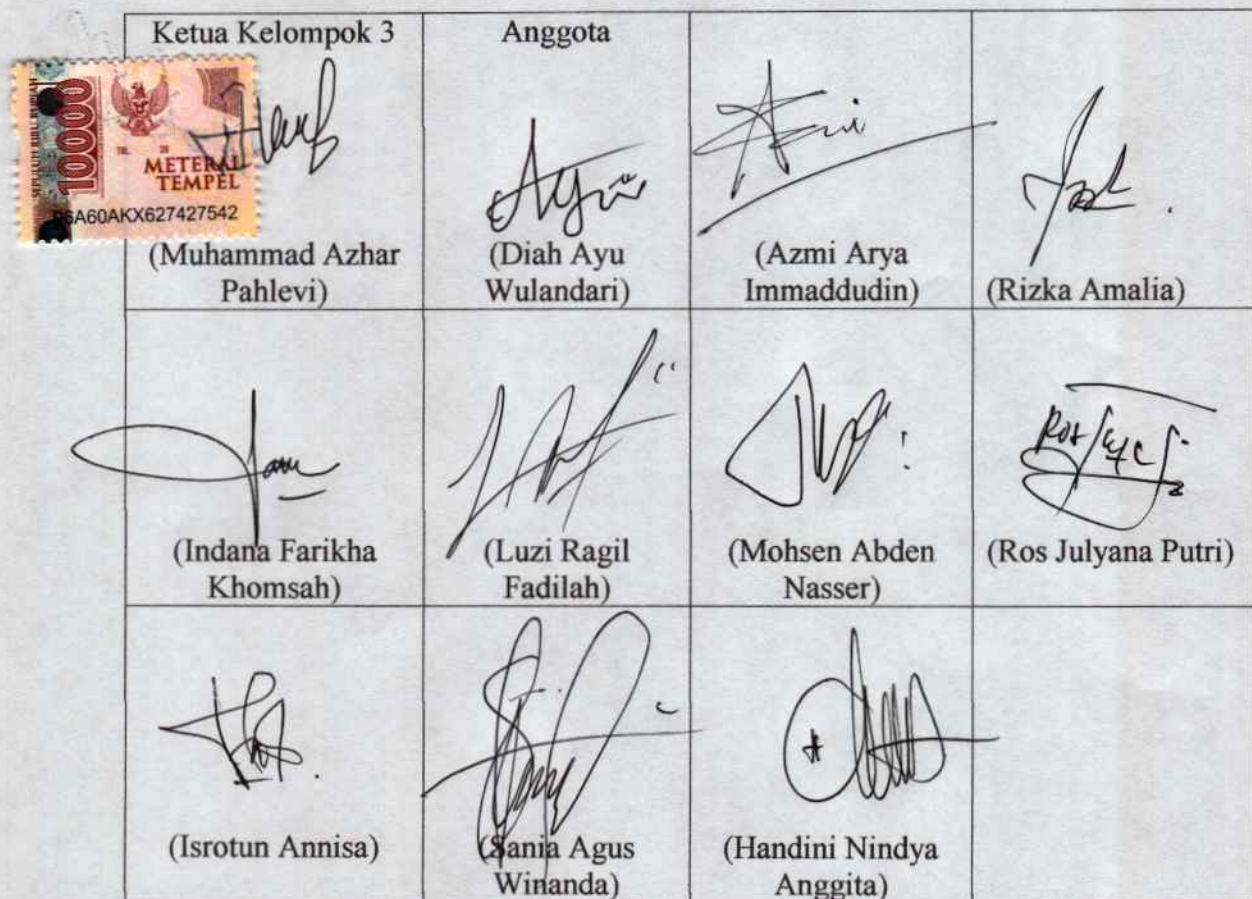 Ketua Kelompok 3
Anggota
SEPULUH RIBU RUPIAH
10000
TGL. 20
METERAI
TEMPEL
6A60AKX627427542
(Muhammad Azhar
Pahlevi)
(Diah Ayu
Wulandari)
(Azmi Arya
Immaddudin)
(Rizka Amalia)
(Indana Farikha
Khomsah)
(Luzi Ragil
Fadilah)
(Mohsen Abden
Nasser)
(Ros Julyana Putri)
(Isrotun Annisa)
(Sania Agus
Winanda)
(Handini Nindya
Anggita)